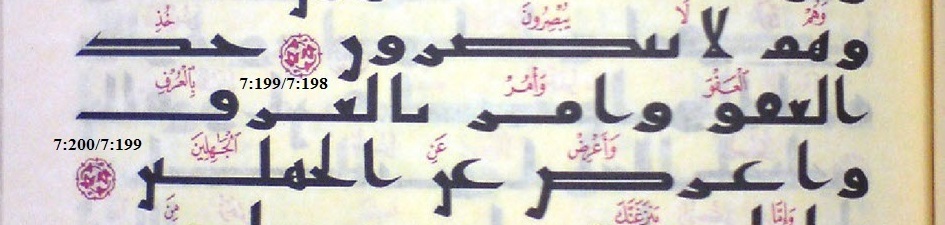 وَهُمْ لَا يُبْصِرُونَ خُذِ
وهم لا ىىصرور حد
7:199/7:198
ٱلْعَفْوَ وَأْمُرْ بِٱلْعُرْفِ
العفو وامر ىالعرف
7:200/7:199
وَأَعْرِضْ عَنِ ٱلْجَٰهِلِينَ
واعرص عر الحهلىں
وَإِمَّا يَنزَغَنَّكَ مِنَ